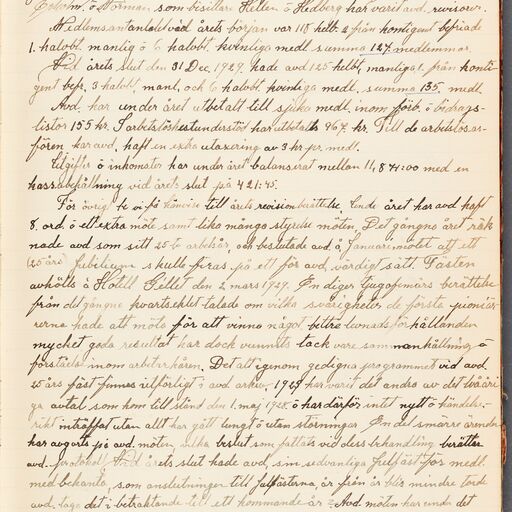 Norman som bisittare Helin o Hedberg har varit avd. revisorer.
Medlemsantalet vid årets början var 118 helb. 2 från kontigent befriade
1. halvbt. manlig o 6 halvbt. kvinliga medl. summa 127 medlemmar.
Vid årets slut den 31 Dec. 1929. hade avd 125 helbt, manliga 1. från konti-
gent befr, 3 halvbt, manl, och 6 halvbt. kvinliga medl. summa 135. medl.
Avd. har under året utbetalt till sjuka medl. inom förb. o bidrags-
listor 155 kr. I arbetslöshetsunderstöd har utbetalts 967. kr. Till de arbetslösas-
fören har avd, haft en extra utaxering av 3 kr pr. medl.
Utgifter o inkomster har under året balanserat mellan 11,871:00 med en
kassabehållning vid årets slut på 421:45.
För övrigt till årets revisionsberättelse. Under året har avd haft
8. ord. o ett extra möte samt lika många styrelse möten. Det gångna året räk
nade avd som sitt 25te arbetsår, och beslutade avd. å Januari mötet att ett
(25 års) Jubileum skulle firas på ett för avd, värdigt sätt. Fästen
avhölls å Hotell Gillet den 2 mars 1929. En diger berättelse
från det gångna kvartseklet talade om vilka svårigheter de första pioniä-
rerna hade att möta för att vinna något bättre levnadsförhållanden
mycket goda resultat har dock vunnits tack vare sammanhållning o
förståelse inom arbetarkåren. Det att igenom gedigna programmet vid avd.
25 års fäst finnes utförligt i avd arkiv, 1929 har varit det andra av det tvååri
ga avtal som kom till stånd den 1. maj 1928. o har därför intet nytt o händelse-
rikt inträffat utan allt har gått lungt o utan störningar. En del smärre ärenden
har avgorts på avd. möten, vilka beslut som fattats vid dess behandling berättar
avd. protokoll. Vid årets slut hade avd, sin sedvanliga julfäst för medl.
med bekanta, som anslutningen till julfästerna, år från år blir mindre torde
avd. taga det i betraktande till ett kommande år. Avd möten har under det